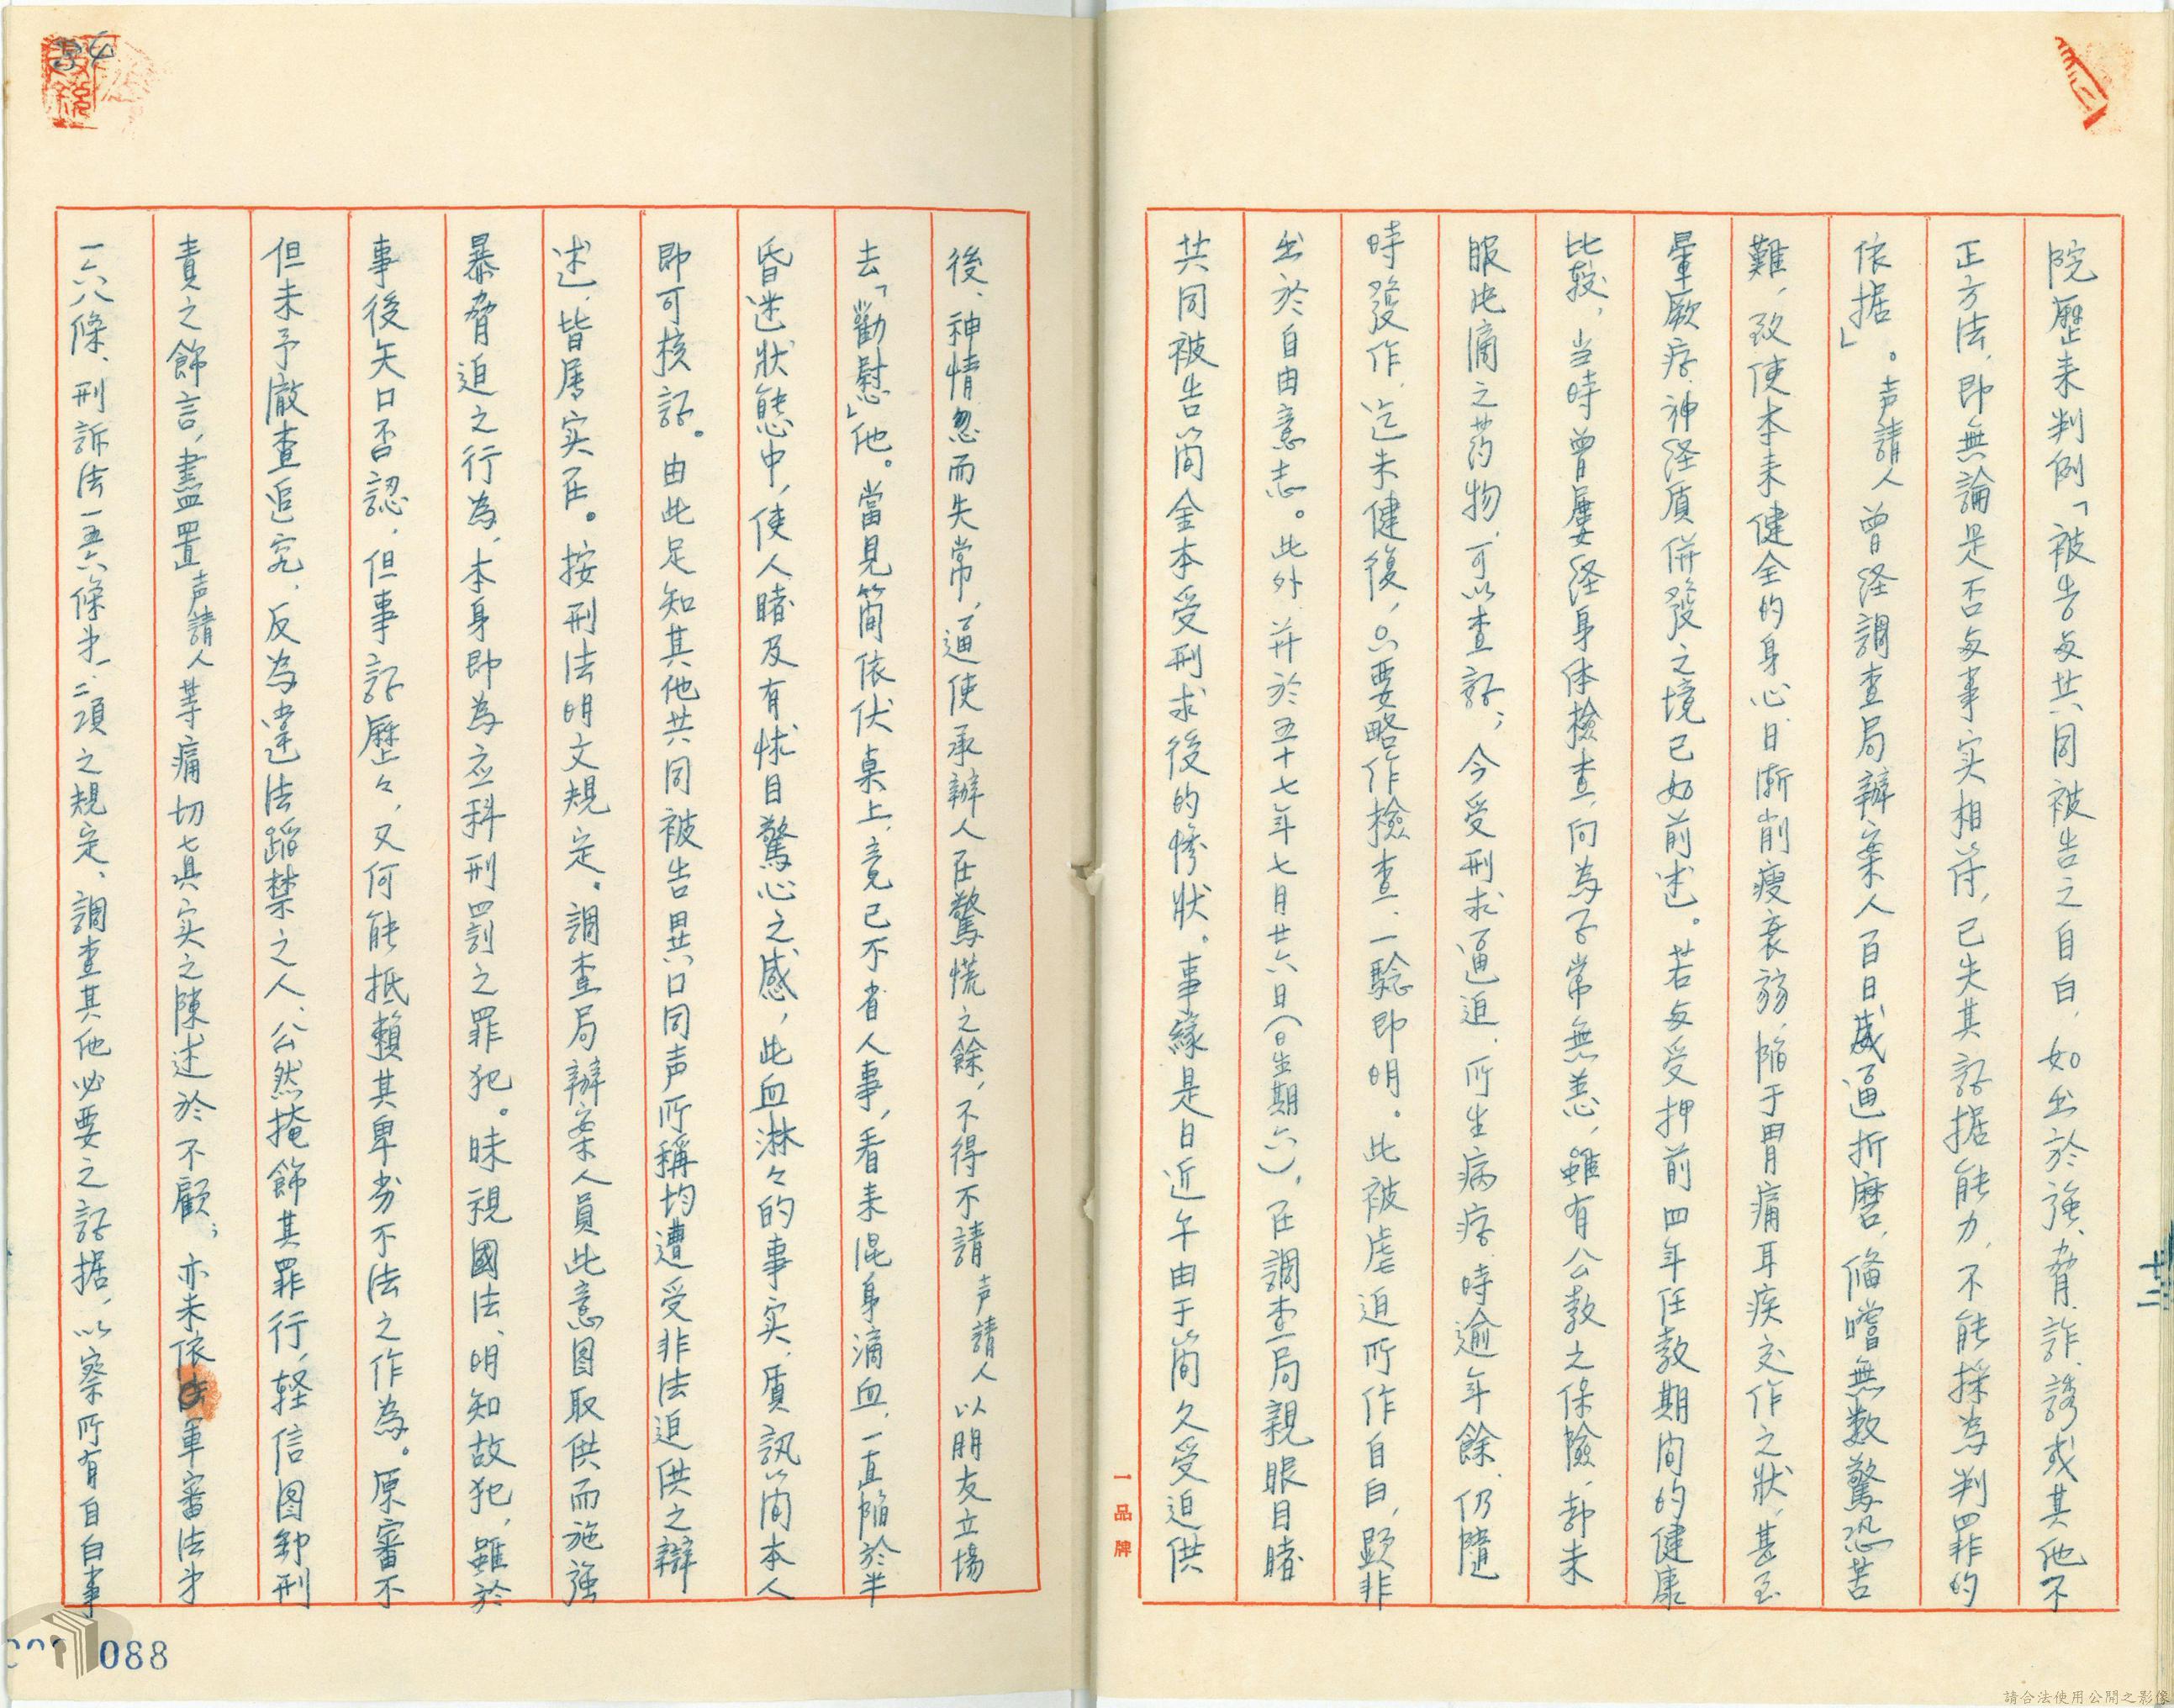 院歷来判例「被告与共同被告之自白，如出於強、脅、詐、誘或其他不
正方法，即無論是否与事实相符，已失其証据能力，不能採為判罪的
依据」。声請人曾経調查局辦案人百日威逼折磨，偹嚐無数驚恐苦
難，致使本来健全的身心，日漸削瘦衰弱，陷于胃痛耳疾交作之狀，甚至
暈厥症、神経质併發之境已如前述。若与受押前四年任教期间的健康
比較，当時曾屢経身体檢查，向為正常無恙，雖有公教之保險，都未
服此滴之药物，可以查証；今受刑求逼迫，所生病症，時逾年餘，仍隨
時發作，迄未健復，只要略作檢查，一驗即明。此被虐迫所作自白，顕非
出於自由意志。此外，并於五十七年七月廿六日（星期六），在調查局親眼目睹
共同被告简金本受刑求後的慘狀。事緣是日近午由于简久受迫供
十三
一品牌
後、神情忽而失常，逼使承辦人在驚慌之餘，不得不請声請人以朋友立場
去「勸慰」他。當見简依伏桌上，竟已不省人事，看来混身滴血，一直陷於半
昏迷狀態中，使人睹及有怵目驚心之感，此血淋々的事实，质訊简本人
即可核証。由此足知其他共同被告異口同声所稱均遭受非法迫供之辯
述，皆屬实在。按刑法明文規定，調查局辦案人員此意图取供而施強
暴脅迫之行為，本身即為应科刑罰之罪犯。昧視國法、明知故犯，雖於
事後矢口否認，但事証歷々，又何能抵賴其卑劣不法之作為。原審不
但未予徹查追究，反為違法蹈禁之人、公然掩飾其罪行，轻信图卸刑
責之飾言，盡置声請人等痛切真实之陳述於不顧；亦未依軍審法第
一六八條、刑訴法一五六條第一、二項之規定、調查其他必要之証据，以察所有自白事
088
請合法使用公開之影像